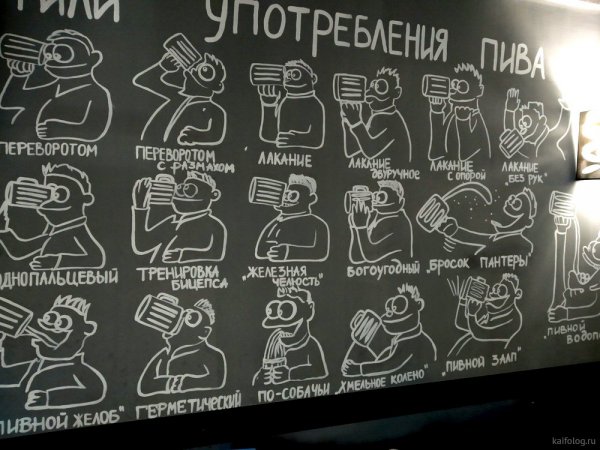 ТИЛИ УПОТРЕБЛЕНИЯ ПИВА
ПЕРЕВОРОТОМ
ПЕРЕВОРОТОМ
С РАЗМАХОМ
ЛАКАНИЕ
ЛАКАНИЕ
ДВУРУЧНОЕ
ЛАКАНИЕ
С ОПОРОЙ
ЛАКАНИЕ
"БЕЗ РУК"
ОДНОПАЛЬЦЕВЫЙ
ТРЕНИРОВКА
БИЦЕПСА
"ЖЕЛЕЗНАЯ
ЧЕЛЮСТЬ"
БОГОУГОДНЫЙ
"БРОСОК ПАНТЕРЫ"
"ПИВНОЙ
ВОДОПА
ПИВНОЙ ЖЕЛОБ"
ГЕРМЕТИЧЕСКИЙ
ПО-СОБАЧЬИ
"ХМЕЛЬНОЕ КОЛЕНО"
"ПИВНОЙ ЗАЛП"
kaifolog.ru